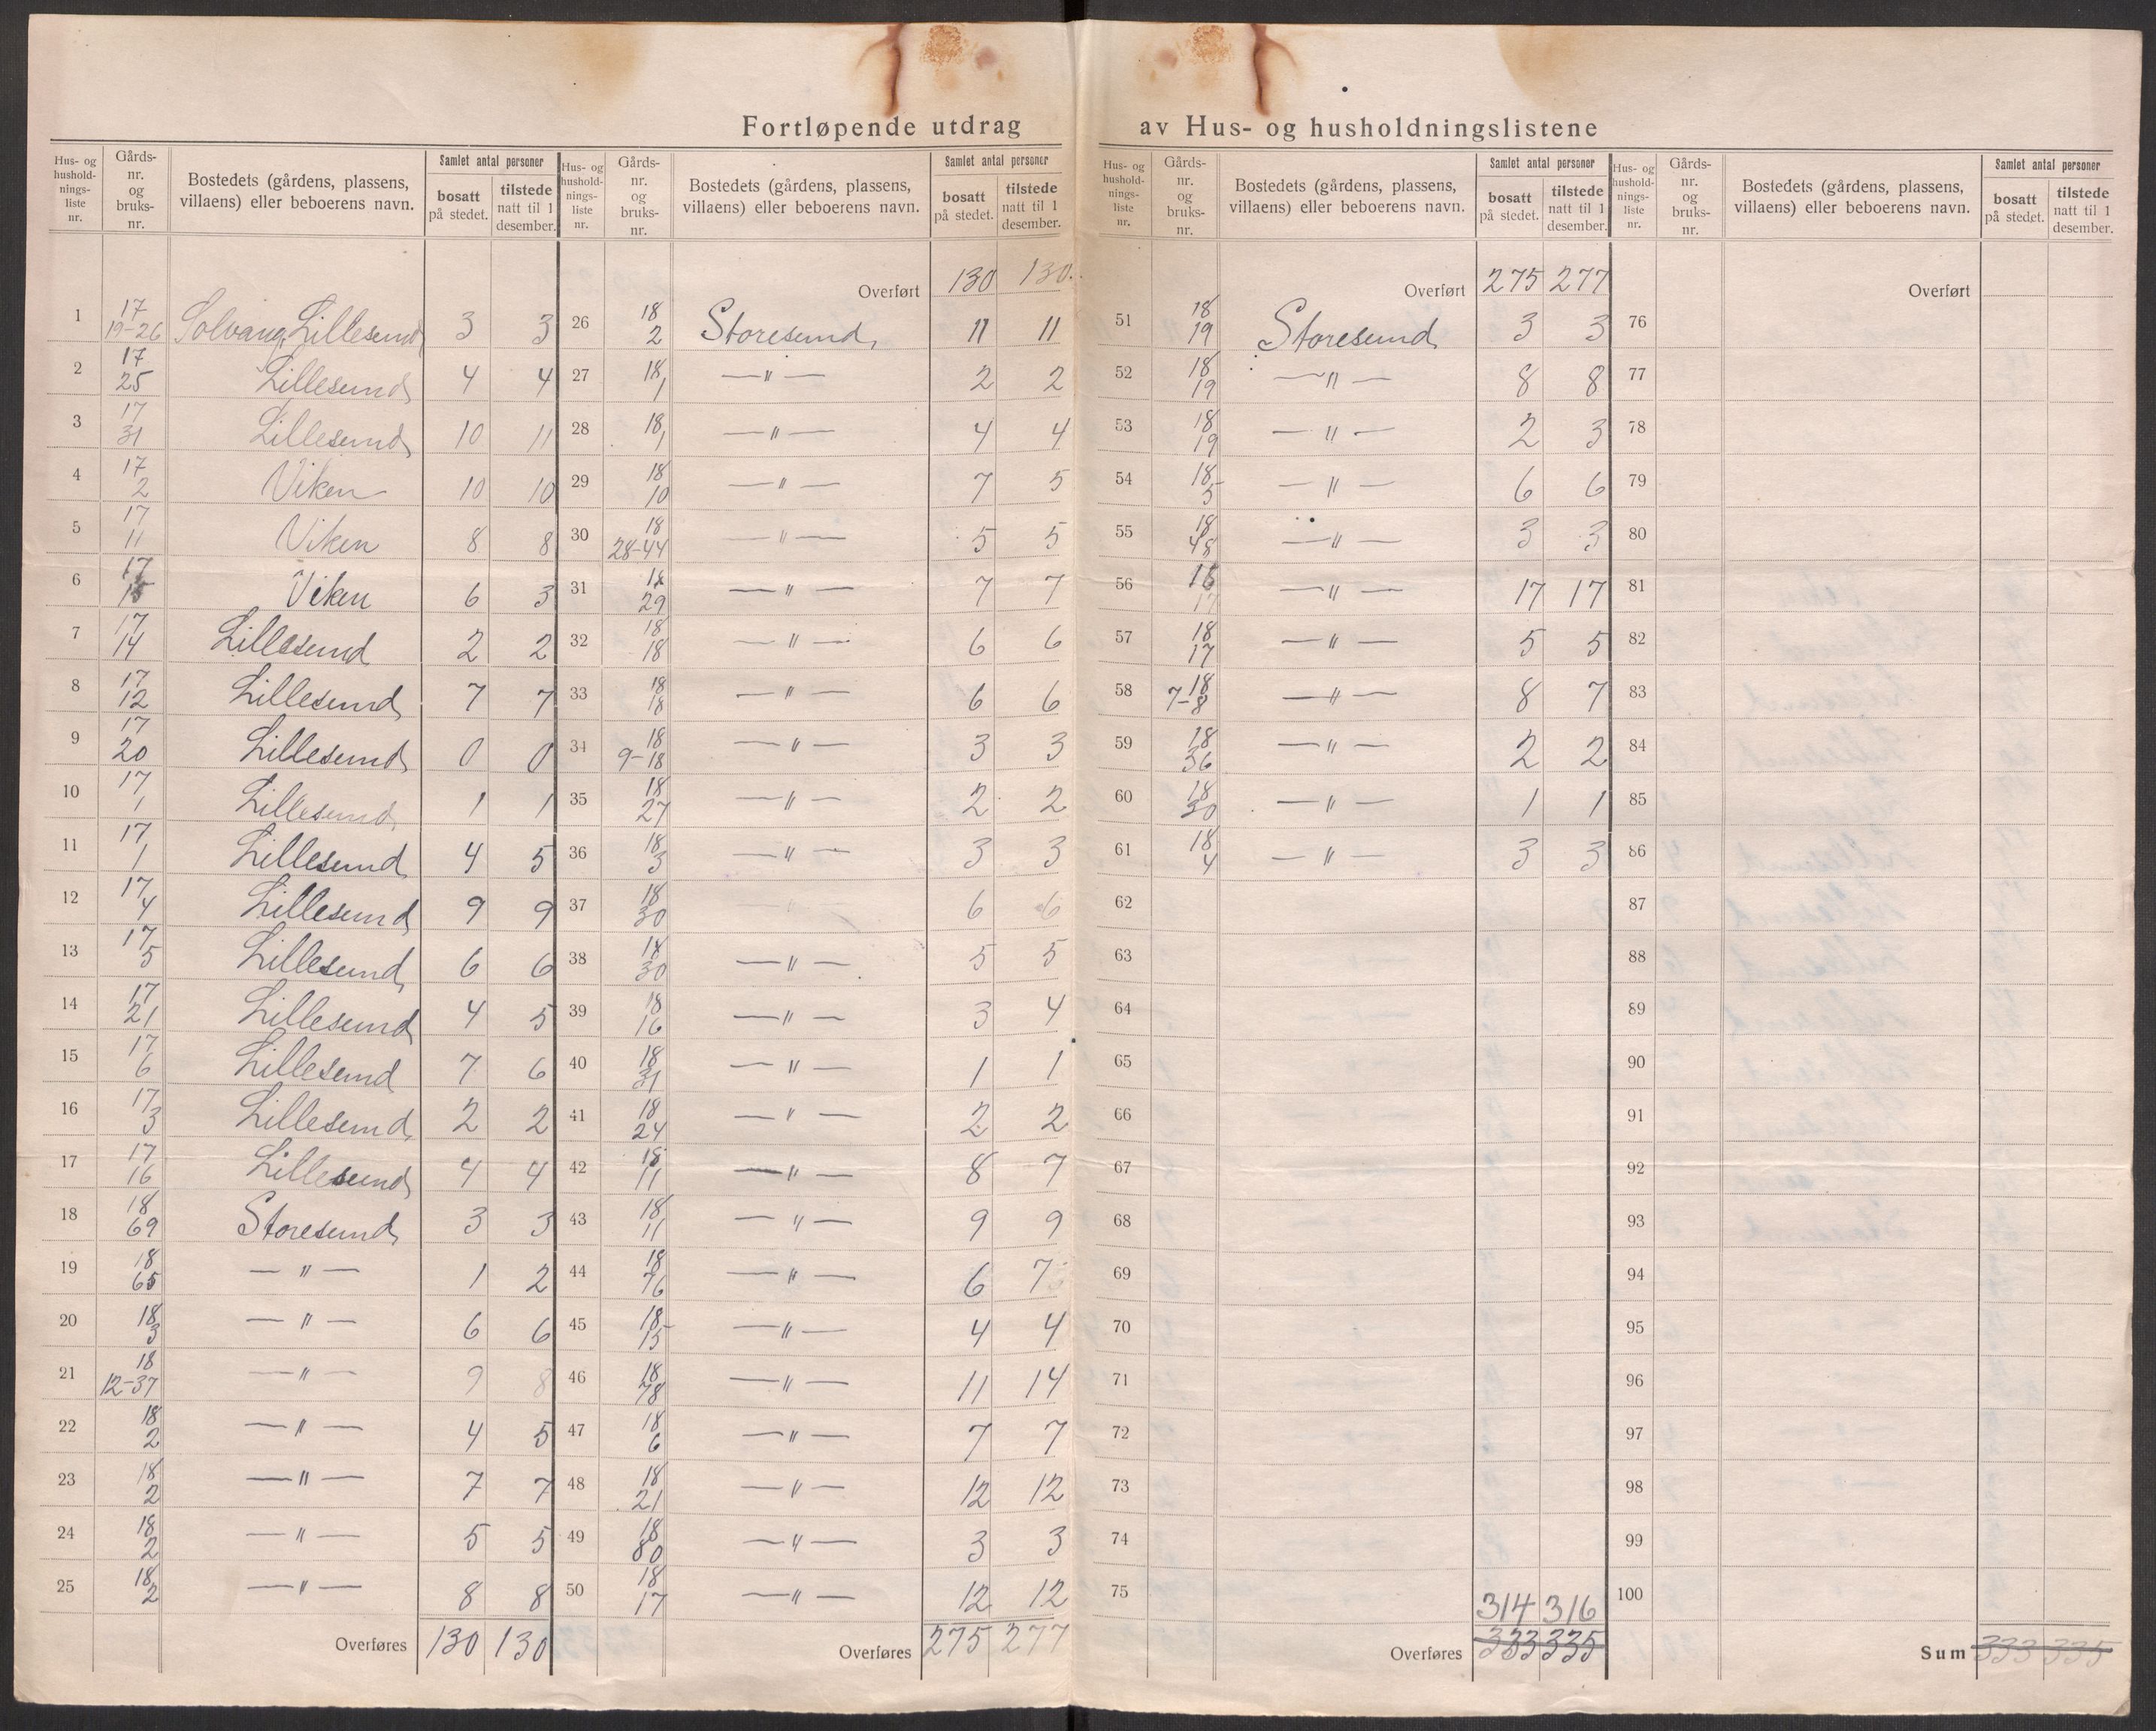 Fortløpende utdrag av Hus- og husholdningslistene
Hus- og husholdningsliste nr. | Gårdsnr. og bruksnr. | Bostedets (gårdens, plassens, villaens) eller beboerens navn. | Samlet antal personer bosatt på stedet. | tilstede natt til 1 desember.
1 | 17 19-26 | Solvang, Lillesund | 3 | 3
2 | 17 25 | Lillesund | 4 | 4
3 | 17 31 | Lillesund | 10 | 11
4 | 17 2 | Viken | 10 | 10
5 | 17 11 | Viken | 8 | 8
6 | 17 | Viken | 6 | 3
7 | 17 14 | Lillesund | 2 | 2
8 | 17 12 | Lillesund | 7 | 7
9 | 17 20 | Lillesund | 0 | 0
10 | 17 1 | Lillesund | 1 | 1
11 | 17 1 | Lillesund | 4 | 5
12 | 17 4 | Lillesund | 9 | 9
13 | 17 5 | Lillesund | 6 | 6
14 | 17 21 | Lillesund | 4 | 5
15 | 17 6 | Lillesund | 7 | 6
16 | 17 3 | Lillesund | 2 | 2
17 | 17 16 | Lillesund | 4 | 4
18 | 18 69 | Storesund | 3 | 3
19 | 18 65 | —"— | 1 | 2
20 | 18 3 | —"— | 6 | 6
21 | 18 12-37 | —"— | 9 | 8
22 | 18 2 | —"— | 4 | 5
23 | 18 2 | —"— | 7 | 7
24 | 18 2 | —"— | 5 | 5
25 | 18 2 | —"— | 8 | 8
Overføres 130 130
Hus- og husholdningsliste nr. | Gårdsnr. og bruksnr. | Bostedets (gårdens, plassens, villaens) eller beboerens navn. | Samlet antal personer bosatt på stedet. | tilstede natt til 1 desember.
Overført 130 130.
26 | 18 2 | Storesund | 11 | 11
27 | 18 1 | —"— | 2 | 2
28 | 18 1 | —"— | 4 | 4
29 | 18 10 | —"— | 7 | 5
30 | 18 28-44 | —"— | 5 | 5
31 | 18 29 | —"— | 7 | 7
32 | 18 18 | —"— | 6 | 6
33 | 18 18 | —"— | 6 | 6
34 | 18 9-18 | —"— | 3 | 3
35 | 18 27 | —"— | 2 | 2
36 | 18 3 | —"— | 3 | 3
37 | 18 30 | —"— | 6 | 6
38 | 18 30 | —"— | 5 | 5
39 | 18 16 | —"— | 3 | 4
40 | 18 31 | —"— | 1 | 1
41 | 18 24 | —"— | 2 | 2
42 | 18 11 | —"— | 8 | 7
43 | 18 11 | —"— | 9 | 9
44 | 18 76 | —"— | 6 | 7
45 | 18 15 | —"— | 4 | 4
46 | 18 78 | —"— | 11 | 14
47 | 18 6 | —"— | 7 | 7
48 | 18 21 | —"— | 12 | 12
49 | 18 80 | —"— | 3 | 3
50 | 18 17 | —"— | 12 | 12
Overføres 275 277
Hus- og husholdningsliste nr. | Gårdsnr. og bruksnr. | Bostedets (gårdens, plassens, villaens) eller beboerens navn. | Samlet antal personer bosatt på stedet. | tilstede natt til 1 desember.
Overført 275 277
51 | 18 19 | Storesund | 3 | 3
52 | 18 19 | —"— | 8 | 8
53 | 18 19 | —"— | 2 | 3
54 | 18 5 | —"— | 6 | 6
55 | 18 48 | —"— | 3 | 3
56 | 18 17 | —"— | 17 | 17
57 | 18 17 | —"— | 5 | 5
58 | 18 7-8 | —"— | 8 | 7
59 | 18 36 | —"— | 2 | 2
60 | 18 30 | —"— | 1 | 1
61 | 18 4 | —"— | 3 | 3
62
63
64
65
66
67
68
69
70
71
72
73
74
75
314 316
Overføres 333 335
Hus- og husholdningsliste nr. | Gårdsnr. og bruksnr. | Bostedets (gårdens, plassens, villaens) eller beboerens navn. | Samlet antal personer bosatt på stedet. | tilstede natt til 1 desember.
Overført
76
77
78
79
80
81
82
83
84
85
86
87
88
89
90
91
92
93
94
95
96
97
98
99
100
Sum 333 335